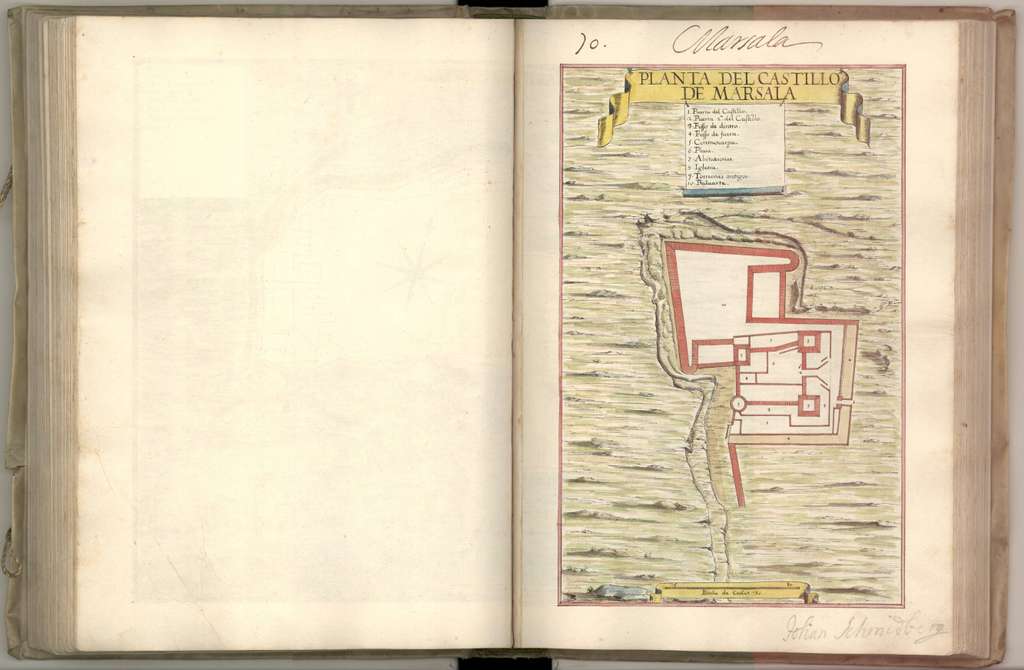 70.
Marsala
PLANTA DEL CASTILLO
DE MARSALA
1. Puerta del Castillo.
2. Puerta 2ª del Castillo.
3. Fosso de dentro.
4. Fosso de fuera.
5. Contraescarpa.
6. Plasa.
7. Abitationes
8. Iglesia.
9. Torreones antigos
10. Baluarte.